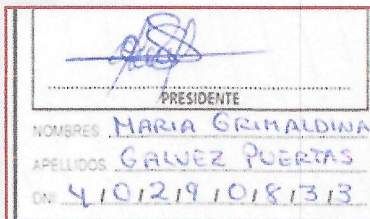 PRESIDENTE
NOMBRES MARIA GRIMALDINA
APELLIDOS GALVEZ PUERTAS
DNI 40290833